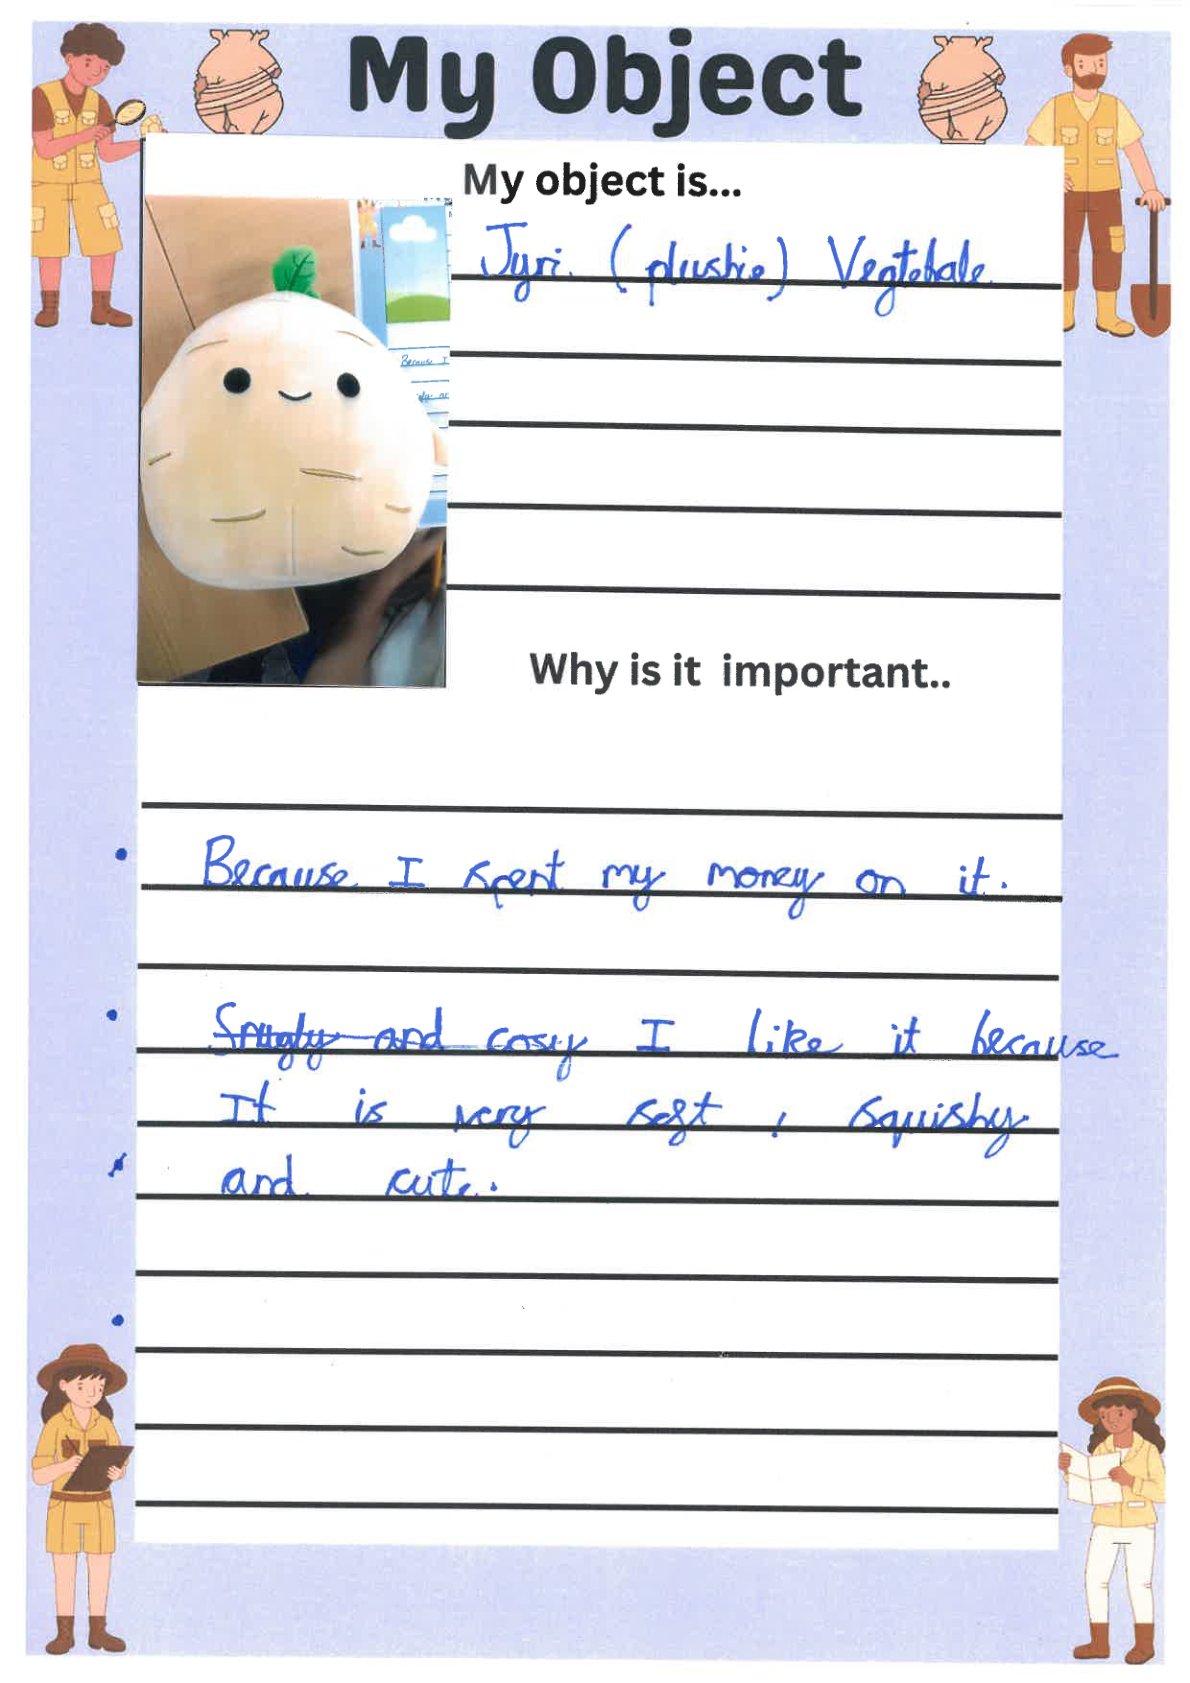 My Object
My object is...
Jyri. (plushie) Vegtebale.
Because I
Why is it important..
Because I spent my money on it.
Snugly and cosy I like it because
It is very soft , squishy
and cute.